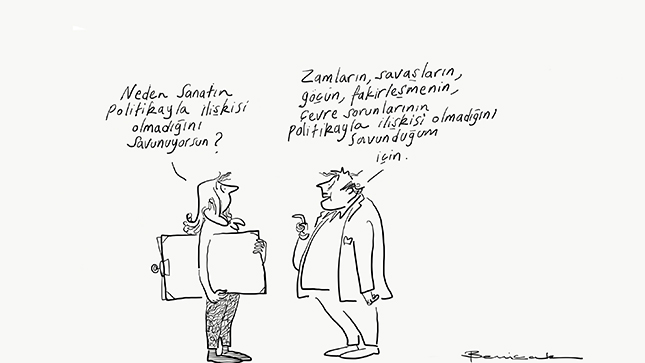 Neden Sanatın
politikayla ilişkisi
olmadığını
Savunuyorsun?
Zamların, savaşların,
göçün, fakirleşmenin,
çevre sorunlarının
politikayla ilişkisi olmadığını
savunduğum
için.